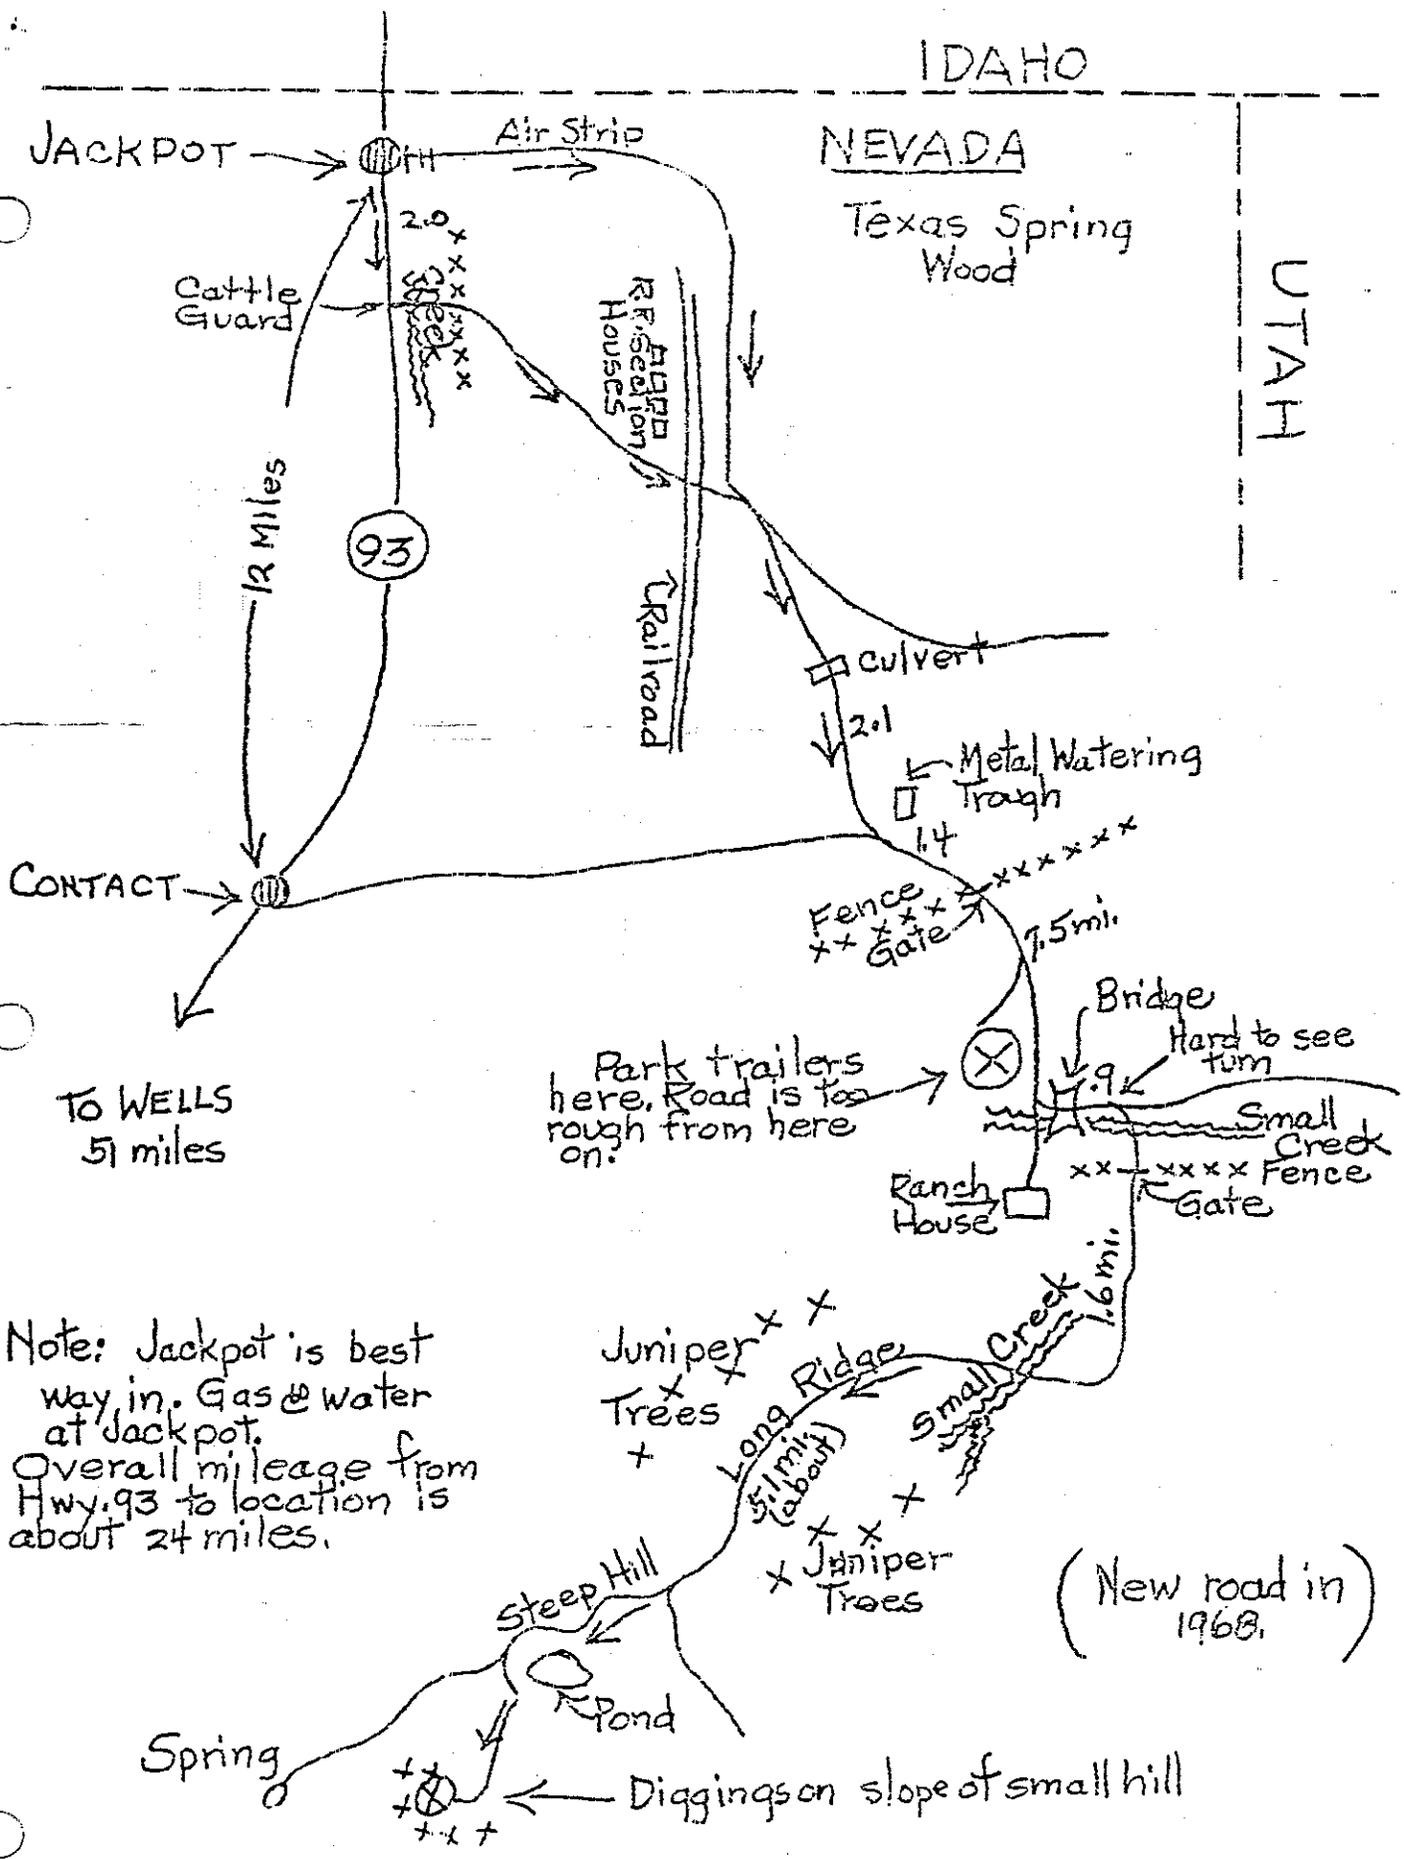 IDAHO
JACKPOT
Air Strip
NEVADA
Texas Spring
Wood
UTAH
2.0
Cattle
Guard
Creek
R.R. Section
Houses
12 Miles
93
Railroad
Culvert
2.1
Metal Watering
Trough
1.4
CONTACT
Fence
Gate
7.5mi.
Bridge
Hard to see
turn
.9
Park trailers
here. Road is too
rough from here
on.
Small
Creek
Fence
Gate
Ranch
House
TO WELLS
51 miles
1.6 mi.
Small Creek
Juniper
Trees
Long Ridge
5.1 mi.
(about)
Note: Jackpot is best
way in. Gas & water
at Jackpot.
Overall mileage from
Hwy. 93 to location is
about 24 miles.
Juniper
Trees
Steep Hill
(New road in
1968.)
Pond
Spring
Diggings on slope of small hill